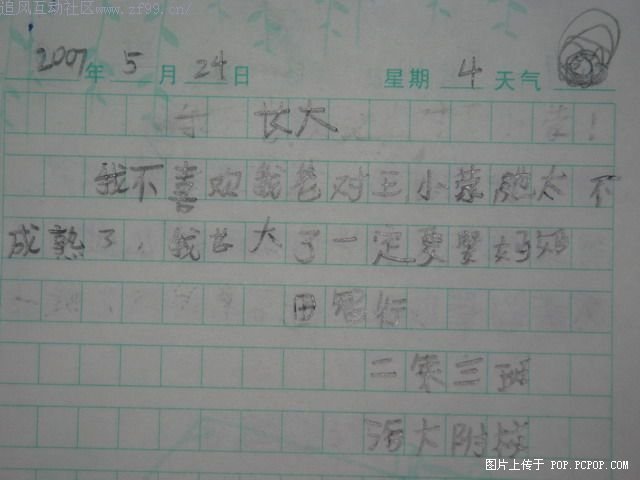 追风互动社区\www.zf99.cn/
2007年5月24日 星期4天气
长大
我不喜欢我爸对王小蒙他太不
成熟了，我长大了一定要娶好好
田
二年三班
附校
图片上传于 POP.PCPOP.COM